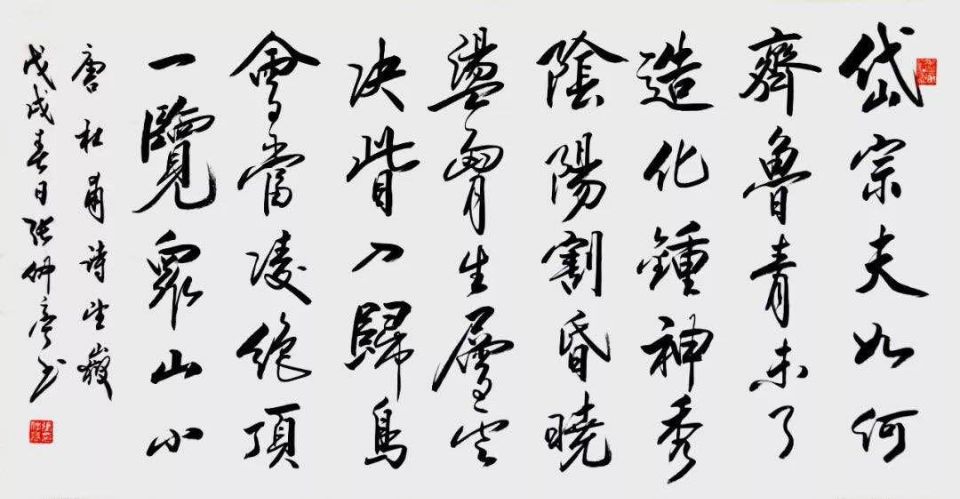 岱宗夫如何
齊魯青未了
造化鍾神秀
陰陽割昏曉
盪胷生層雲
决眥入歸鳥
會當凌絕頂
一覽眾山小
唐杜甫詩望嶽
戊戌春日張仲亭书